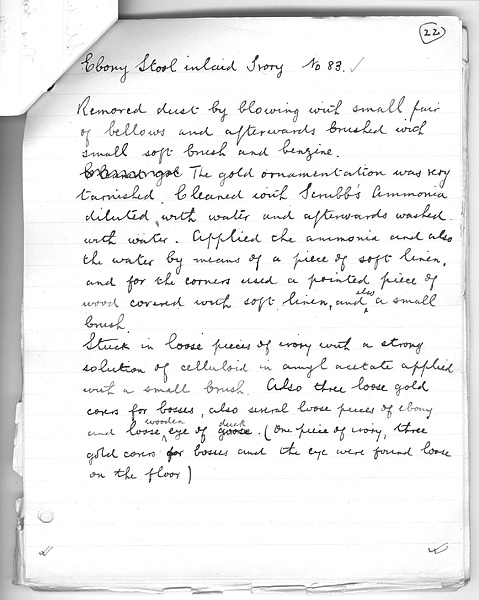 22
Ebony Stool inlaid Ivory No 83. ✓
Removed dust by blowing with small pair
of bellows and afterwards brushed with
small soft brush and benzine.
The gold ornamentation was very
tarnished. Cleaned with Scrubb's Ammonia
diluted with water and afterwards washed
with water. Applied the ammonia and also
the water by means of a piece of soft linen,
and for the corners used a pointed piece of
wood covered with soft linen, and also a small
brush.
Stuck in loose pieces of ivory with a strong
solution of celluloid in amyl acetate applied
with a small brush. Also three loose gold
covers for bosses, also several loose pieces of ebony
and loose wooden eye of goose duck. (One piece of ivory, three
gold covers for bosses and the eye were found loose
on the floor)